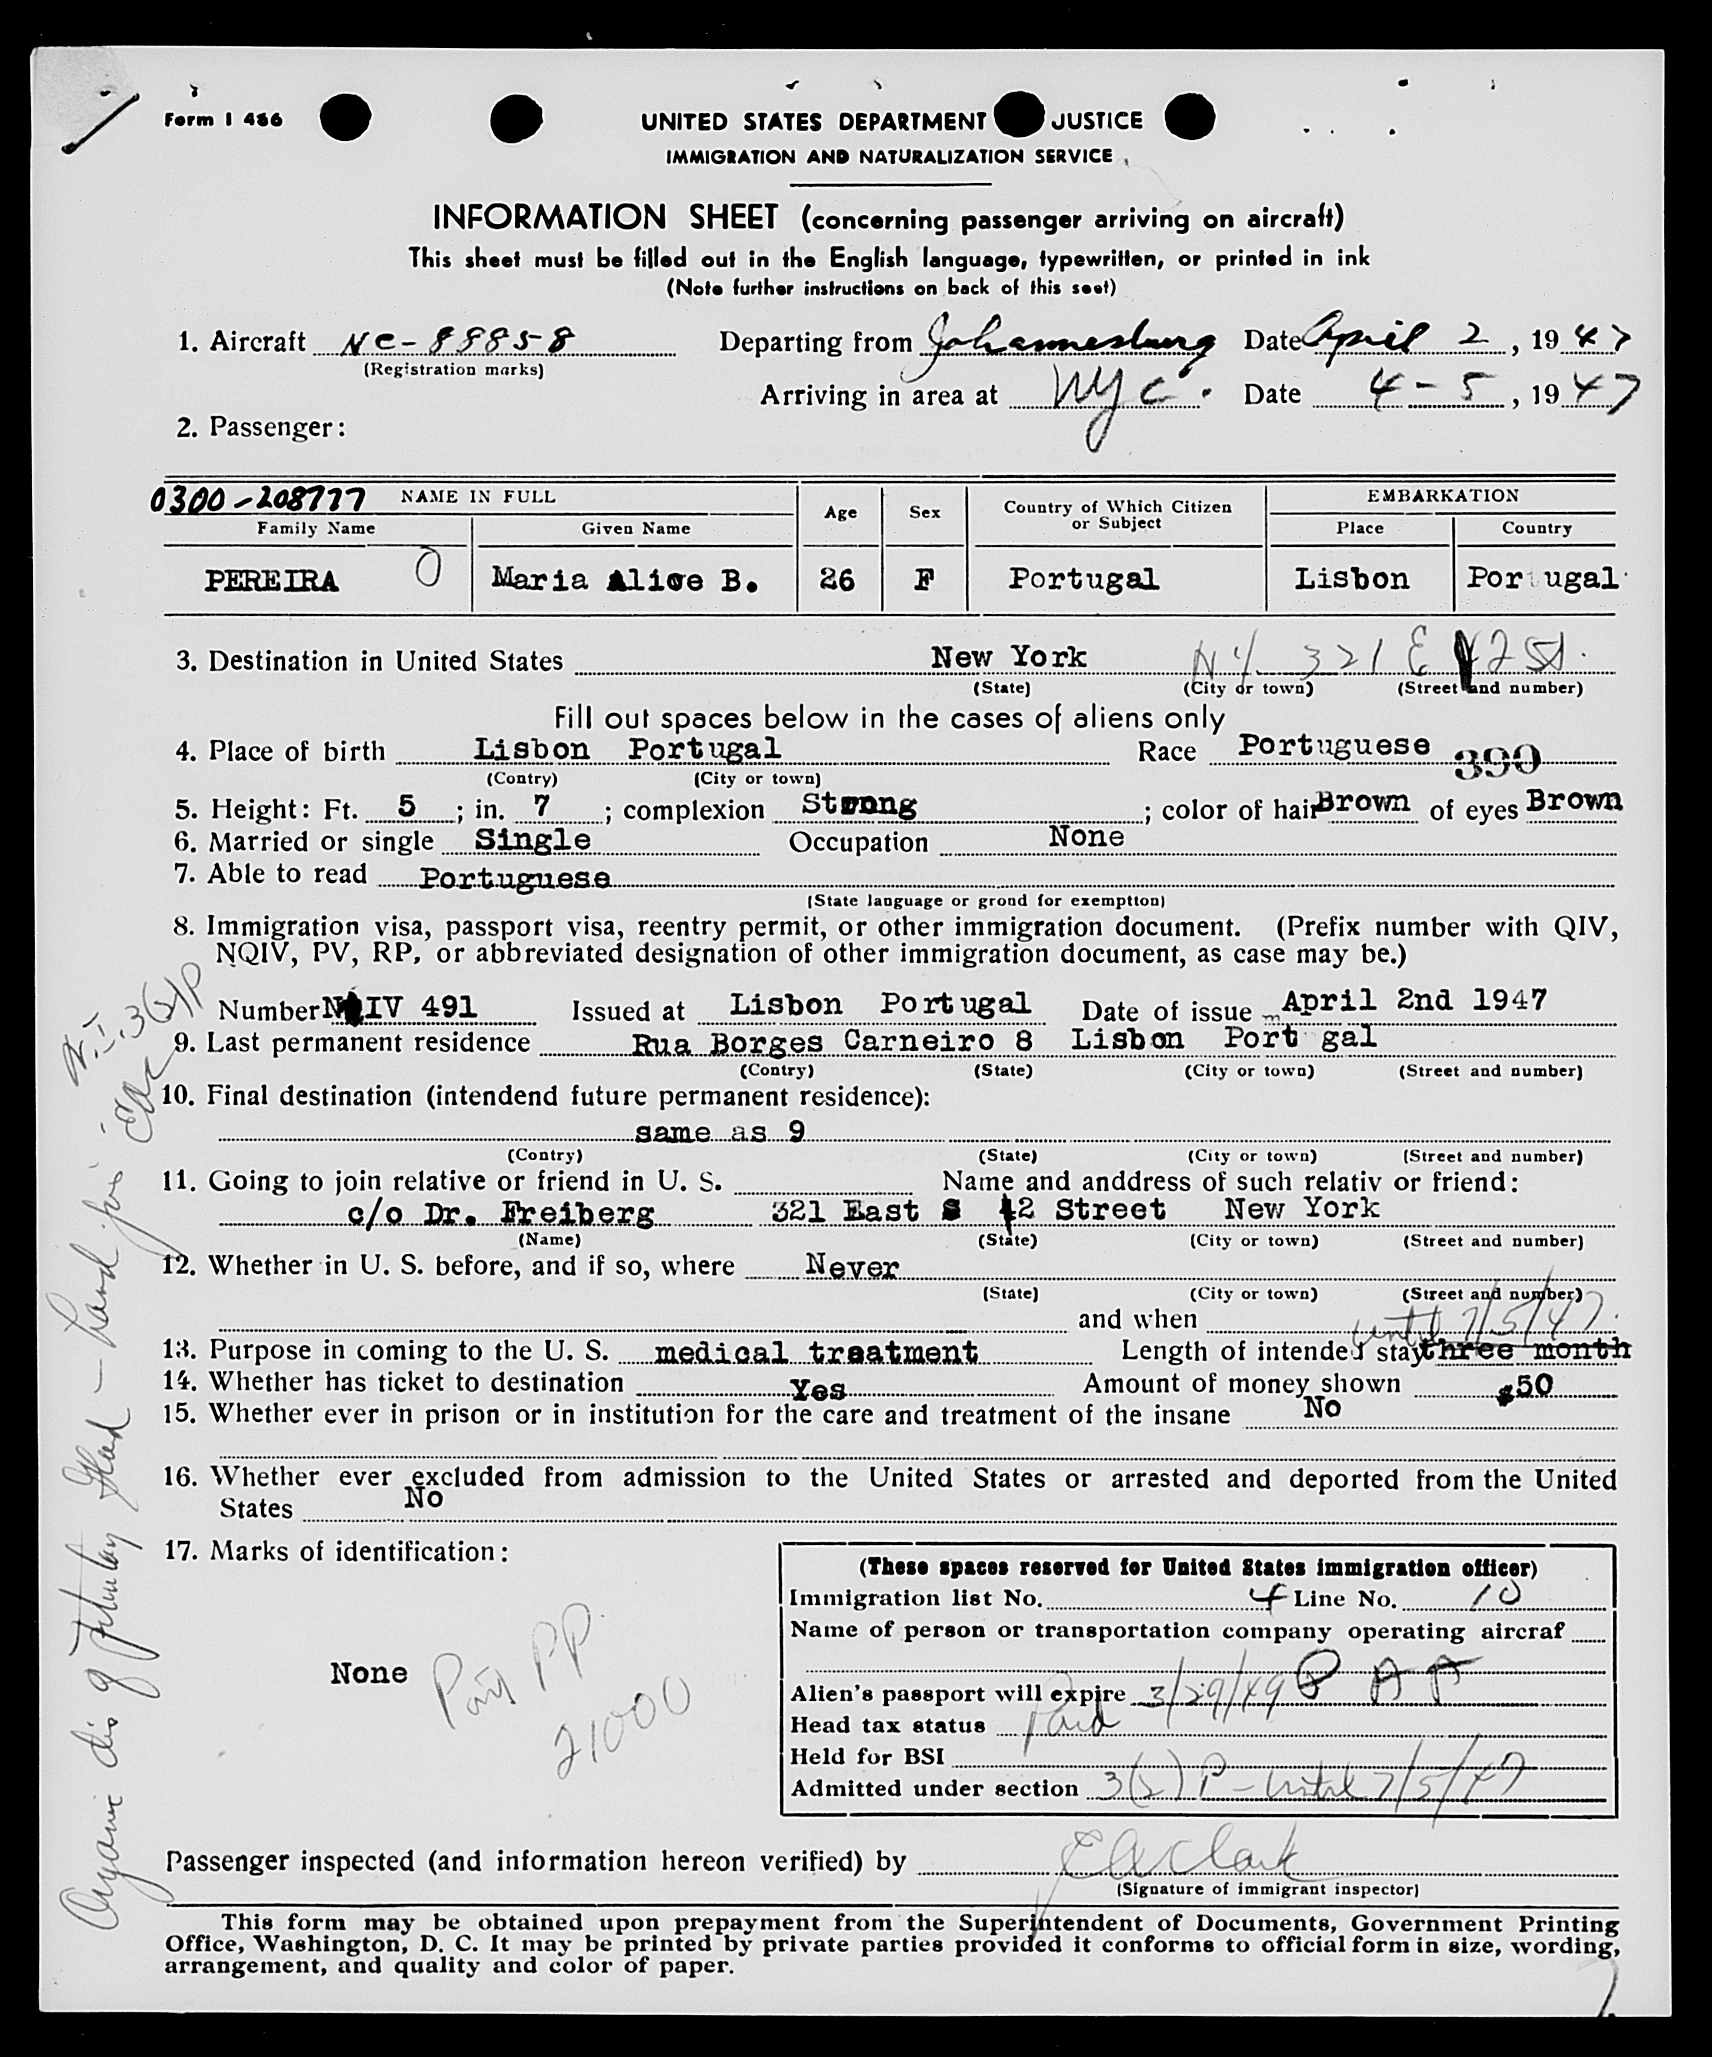 Form I 466
UNITED STATES DEPARTMENT JUSTICE
IMMIGRATION AND NATURALIZATION SERVICE
INFORMATION SHEET (concerning passenger arriving on aircraft)
This sheet must be filled out in the English language, typewritten, or printed in ink
(Note further instructions on back of this seet)
1. Aircraft NC-88858 Departing from Johannesburg Date April 2, 1947
(Registration marks)
Arriving in area at NYC. Date 4-5, 1947
2. Passenger:
0300-208777 NAME IN FULL Age Sex Country of Which Citizen or Subject EMBARKATION
Family Name Given Name Place Country
PEREIRA O Maria Alice B. 26 F Portugal Lisbon Por ugal
3. Destination in United States New York NY 321 E 42 St.
(State) (City or town) (Street and number)
Fill out spaces below in the cases of aliens only
4. Place of birth Lisbon Portugal Race Portuguese 390
(Contry) (City or town)
5. Height: Ft. 5 ; in. 7 ; complexion Strong ; color of hair Brown of eyes Brown
6. Married or single Single Occupation None
7. Able to read Portuguese
(State language or grond for exemption)
8. Immigration visa, passport visa, reentry permit, or other immigration document. (Prefix number with QIV,
NQIV, PV, RP, or abbreviated designation of other immigration document, as case may be.)
Number NQIV 491 Issued at Lisbon Portugal Date of issue April 2nd 1947
9. Last permanent residence Rua Borges Carneiro 8 Lisbon Port gal
(Contry) (State) (City or town) (Street and number)
10. Final destination (intendend future permanent residence):
same as 9
(Contry) (State) (City or town) (Street and number)
11. Going to join relative or friend in U. S. Name and anddress of such relativ or friend:
c/o Dr. Freiberg 321 East 42 Street New York
(Name) (State) (City or town) (Street and number)
12. Whether in U. S. before, and if so, where Never
(State) (City or town) (Street and number)
and when
until 7/5/47.
13. Purpose in coming to the U. S. medical treatment Length of intended stay three month
14. Whether has ticket to destination Yes Amount of money shown $50
15. Whether ever in prison or in institution for the care and treatment of the insane No
16. Whether ever excluded from admission to the United States or arrested and deported from the United
States No
17. Marks of identification:
None
Port PP
21000
(These spaces reserved for United States immigration officer)
Immigration list No. 4 Line No. 10
Name of person or transportation company operating aircraf
P A A
Alien's passport will expire 3/29/49
Head tax status Paid
Held for BSI
Admitted under section 3(2) P - until 7/5/47
Passenger inspected (and information hereon verified) by EAClark
(Signature of immigrant inspector)
This form may be obtained upon prepayment from the Superintendent of Documents, Government Printing
Office, Washington, D. C. It may be printed by private parties provided it conforms to official form in size, wording,
arrangement, and quality and color of paper.
Organic dis of
N.I. 3(2)P
EAC